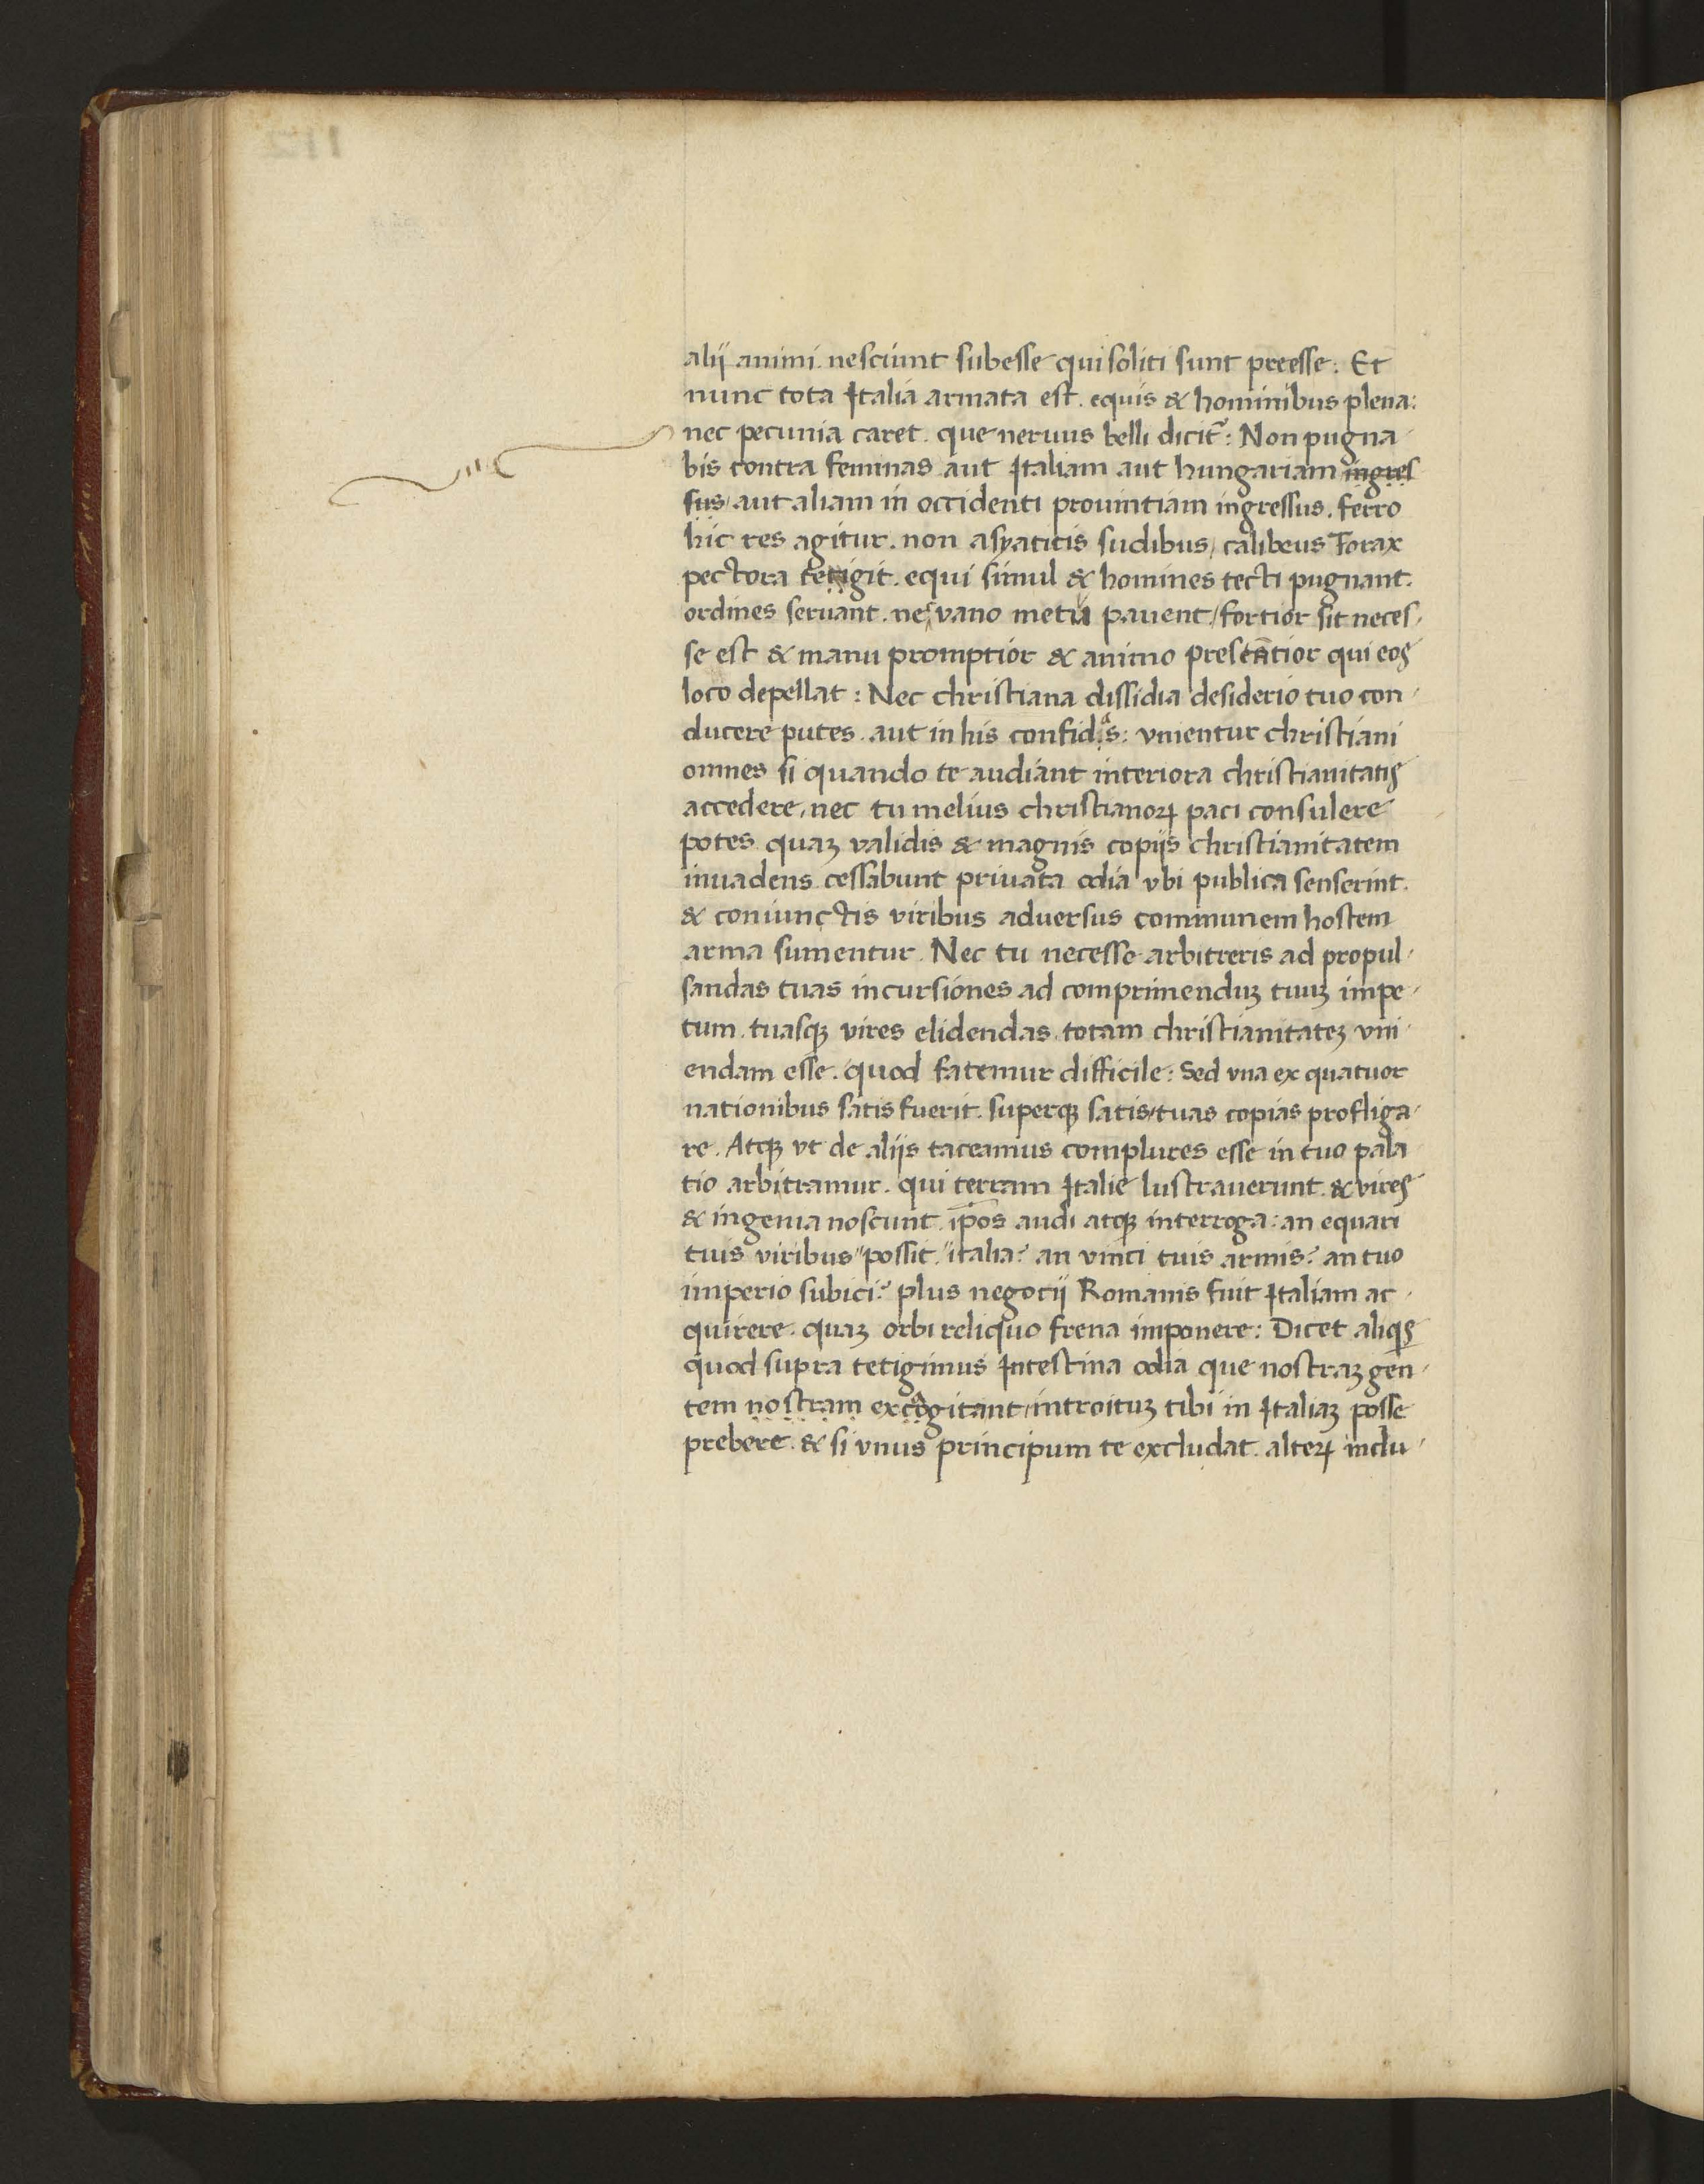 alij animi nesciunt subesse qui soliti sunt preesse : Et
nunc tota Italia armata est . equis & hominibus plena :
nec pecunia caret . que neruus belli dicit᷑ : Non pugna
bis contra feminas aut Italiam aut hungariam ingres
sus / aut aliam in occidenti prouintiam ingressus . ferro
hic res agitur . non asyaticis sudibus / calibeus Forax
pectora tetigit . equi simul & homines tecti pugnant .
ordines seruant . nec vano metu pauent / fortior sit neces
se est & manu promptior & animo presentior qui eos
loco depellat : Nec christiana dissidia desiderio tuo con
ducere putes . aut in his confidas : vnientur christiani
omnes si quando te audiant interiora christianitatis
accedere / nec tu melius christianoꝝ paci consulere
potes quaꝫ validis & magnis copijs christianitatem
inuadens . cessabunt priuata odia vbi publica senserint .
& coniunctis viribus aduersus communem hostem
arma sumentur . Nec tu necesse arbitreris ad propul
sandas tuas incursiones ad comprimenduꝫ tuuꝫ impe
tum . tuasqꝫ vires elidendas . totam christianitateꝫ vni
endam esse . quod fatemur difficile : Sed vna ex quatuor
nationibus satis fuerit . superqꝫ satis / tuas copias profliga
re . Atqꝫ vt de alijs taceamus complures esse in tuo pala
tio arbitramur . qui terram Italie lustrauerunt . & vires
& ingenia noscunt . ip̄os audi atqꝫ interroga : an equari
tuis viribus " possit . " italia ? an vinci tuis armis ? an tuo
imperio subici ? plus negocij Romanis fuit Italiam ac
quirere . quaꝫ orbi reliquo frena imponere : Dicet aliqͥs
quod supra tetigimus Intestina odia que nostraꝫ gen
tem nostram excogitant / introituꝫ tibi in Italiaꝫ posse
prebere . & si vnus principum te excludat . alteꝝ inclu